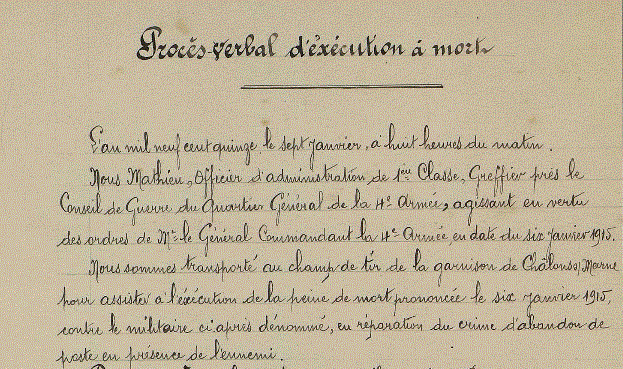 Procès-verbal d'éxécution à mort
L'an mil neuf cent quinze, le sept janvier, à huit heures du matin.
Nous Mathieu, Officier d'administration de 1ère Classe, Greffier près le
Conseil de Guerre du Quartier Général de la 4e Armée, agissant en vertu
des ordres de Mr le Général Commandant la 4e Armée en date du six janvier 1915.
Nous sommes transporté au champ de tir de la garnison de Châlons s/Marne
pour assister à l'éxécution de la peine de mort prononcée le six janvier 1915,
contre le militaire ci après dénommé, en réparation du crime d'abandon de
poste en présence de l'ennemi.